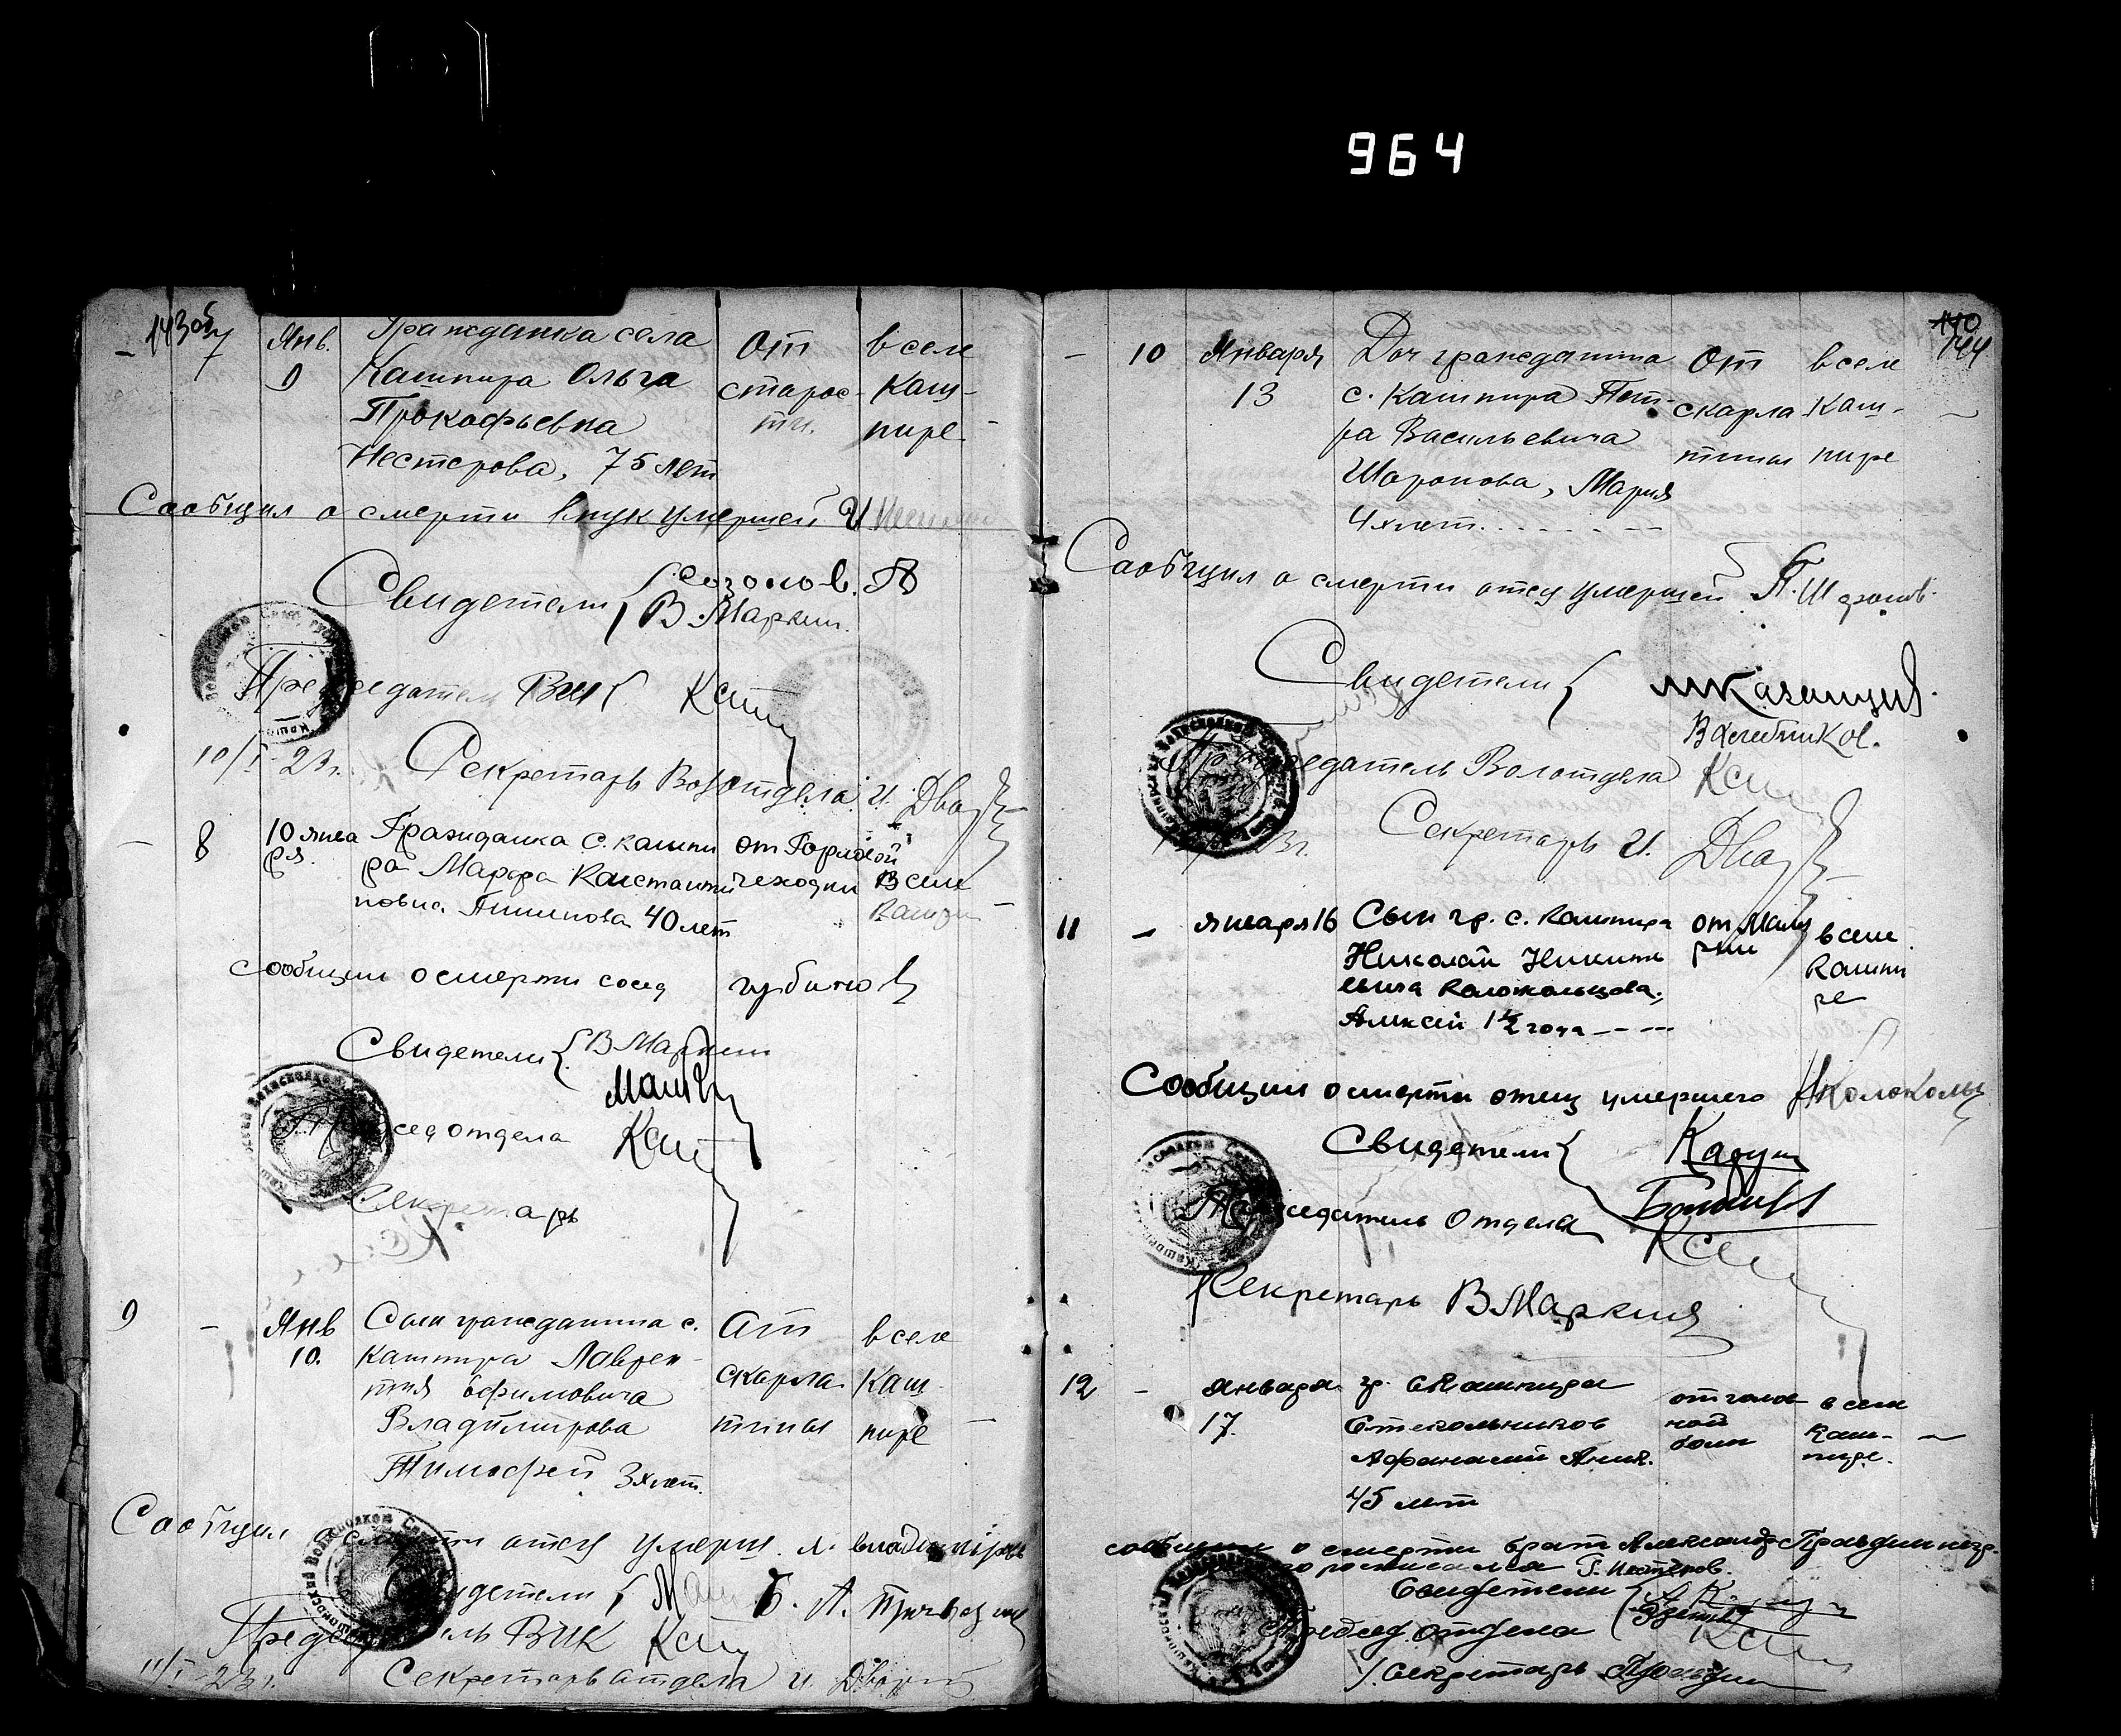 964
143 об
– 7 Янв. 9 Гражданка села Кашпира Ольга Прокофьевна Нестерова, 75 лет
От старости.
в селе Кашпире –
Сообщил о смерти внук умершей И
Свидетели { Созонов. А
В. Маркин.
Председатель ВИК
10/I–23 г. Секретарь Волотдела И.
– 8 10 января. Гражданка с. Кашпира Марфа Константиновна 40 лет
от Горловой чеходки
в селе
сообщил о смерти сосед Губанов
Свидетели { В Маркин
Председ отдела
Секретарь
9 – Янв 10. Сын гражданина с. Кашпира Лаврентия Ефимовича Владимирова Тимофей 3х лет.
От скарлатины
в селе Кашпире –
Сообщил о смерти отец умерш. Л. Владимиров
Свидетели {
Председатель ВИК
11/I–23 г. Секретарь отдела И.
140
144
– 10 Января 13 Доч гражданина с. Кашпира Петра Васильевича Шаронова, Мария 4х лет.
От скарлатины
в селе Кашпире –
Сообщил о смерти отец умершей П. Шаронов.
Свидетели { М Казанцев.
В Хлебников.
Председатель Волотдела
Секретарь И.
11 – января 16 Сын гр. с. Кашпира Николай Никитьевича Колокольцова, Алексей 1 ½ года – – –
от Малярии
в селе Кашпире
Сообщил о смерти отец умершего Н Колокольцов
Свидетели {
Председатель Отдела
Секретарь В Маркин
12 – января 17. гр. с Кашпира Стекольников Афанасий 45 лет
от головной боли
в селе Кашпире. –
сообщил о смерти брат Александр
расписался Г. Нестеров.
Свидетели {
Председ. отдела
Секретарь